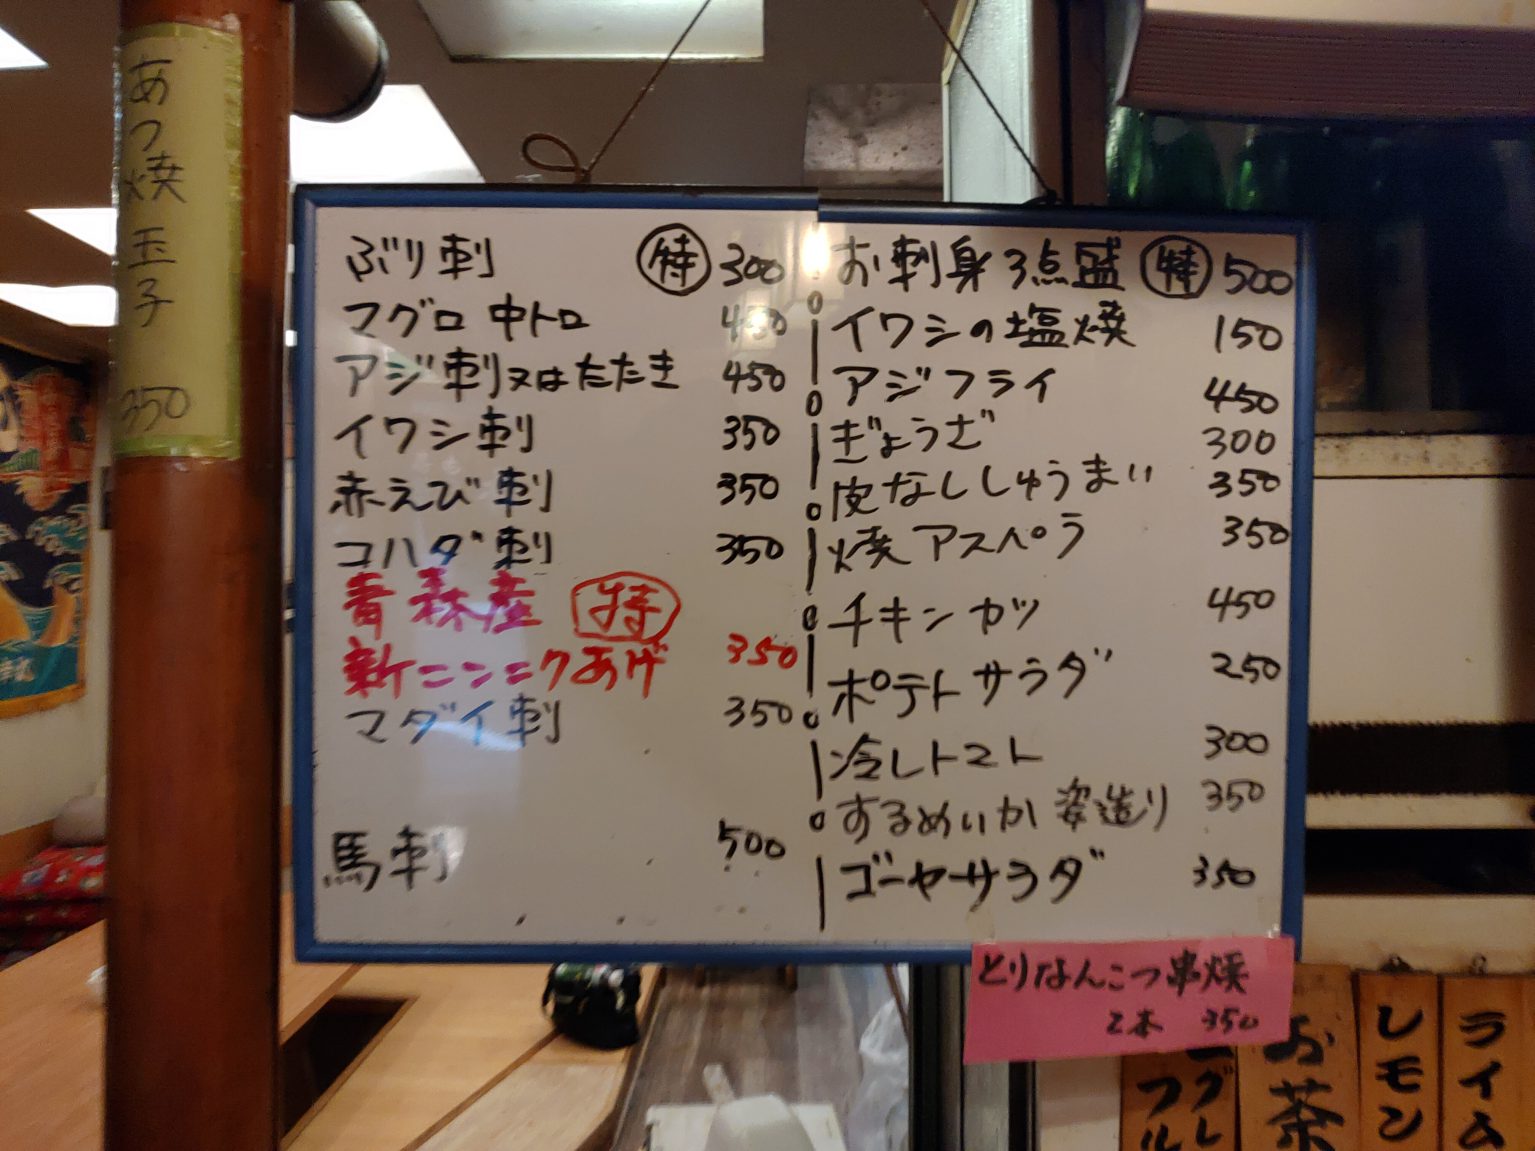 あつ焼玉子 350
ぶり刺 特 300
マグロ 中トロ 450
アジ刺又はたたき 450
イワシ刺 350
赤えび刺 350
コハダ刺 350
青森産 特
新ニンニクあげ 350
マダイ刺 350
馬刺 500
お刺身3点盛 特 500
イワシの塩焼 150
アジフライ 450
ぎょうざ 300
皮なししゅうまい 350
焼アスパラ 350
チキンカツ 450
ポテトサラダ 250
冷しトマト 300
するめいか 姿造り 350
ゴーヤーサラダ 350
とりなんこつ串焼
2本 350
お茶
レモン
ライム